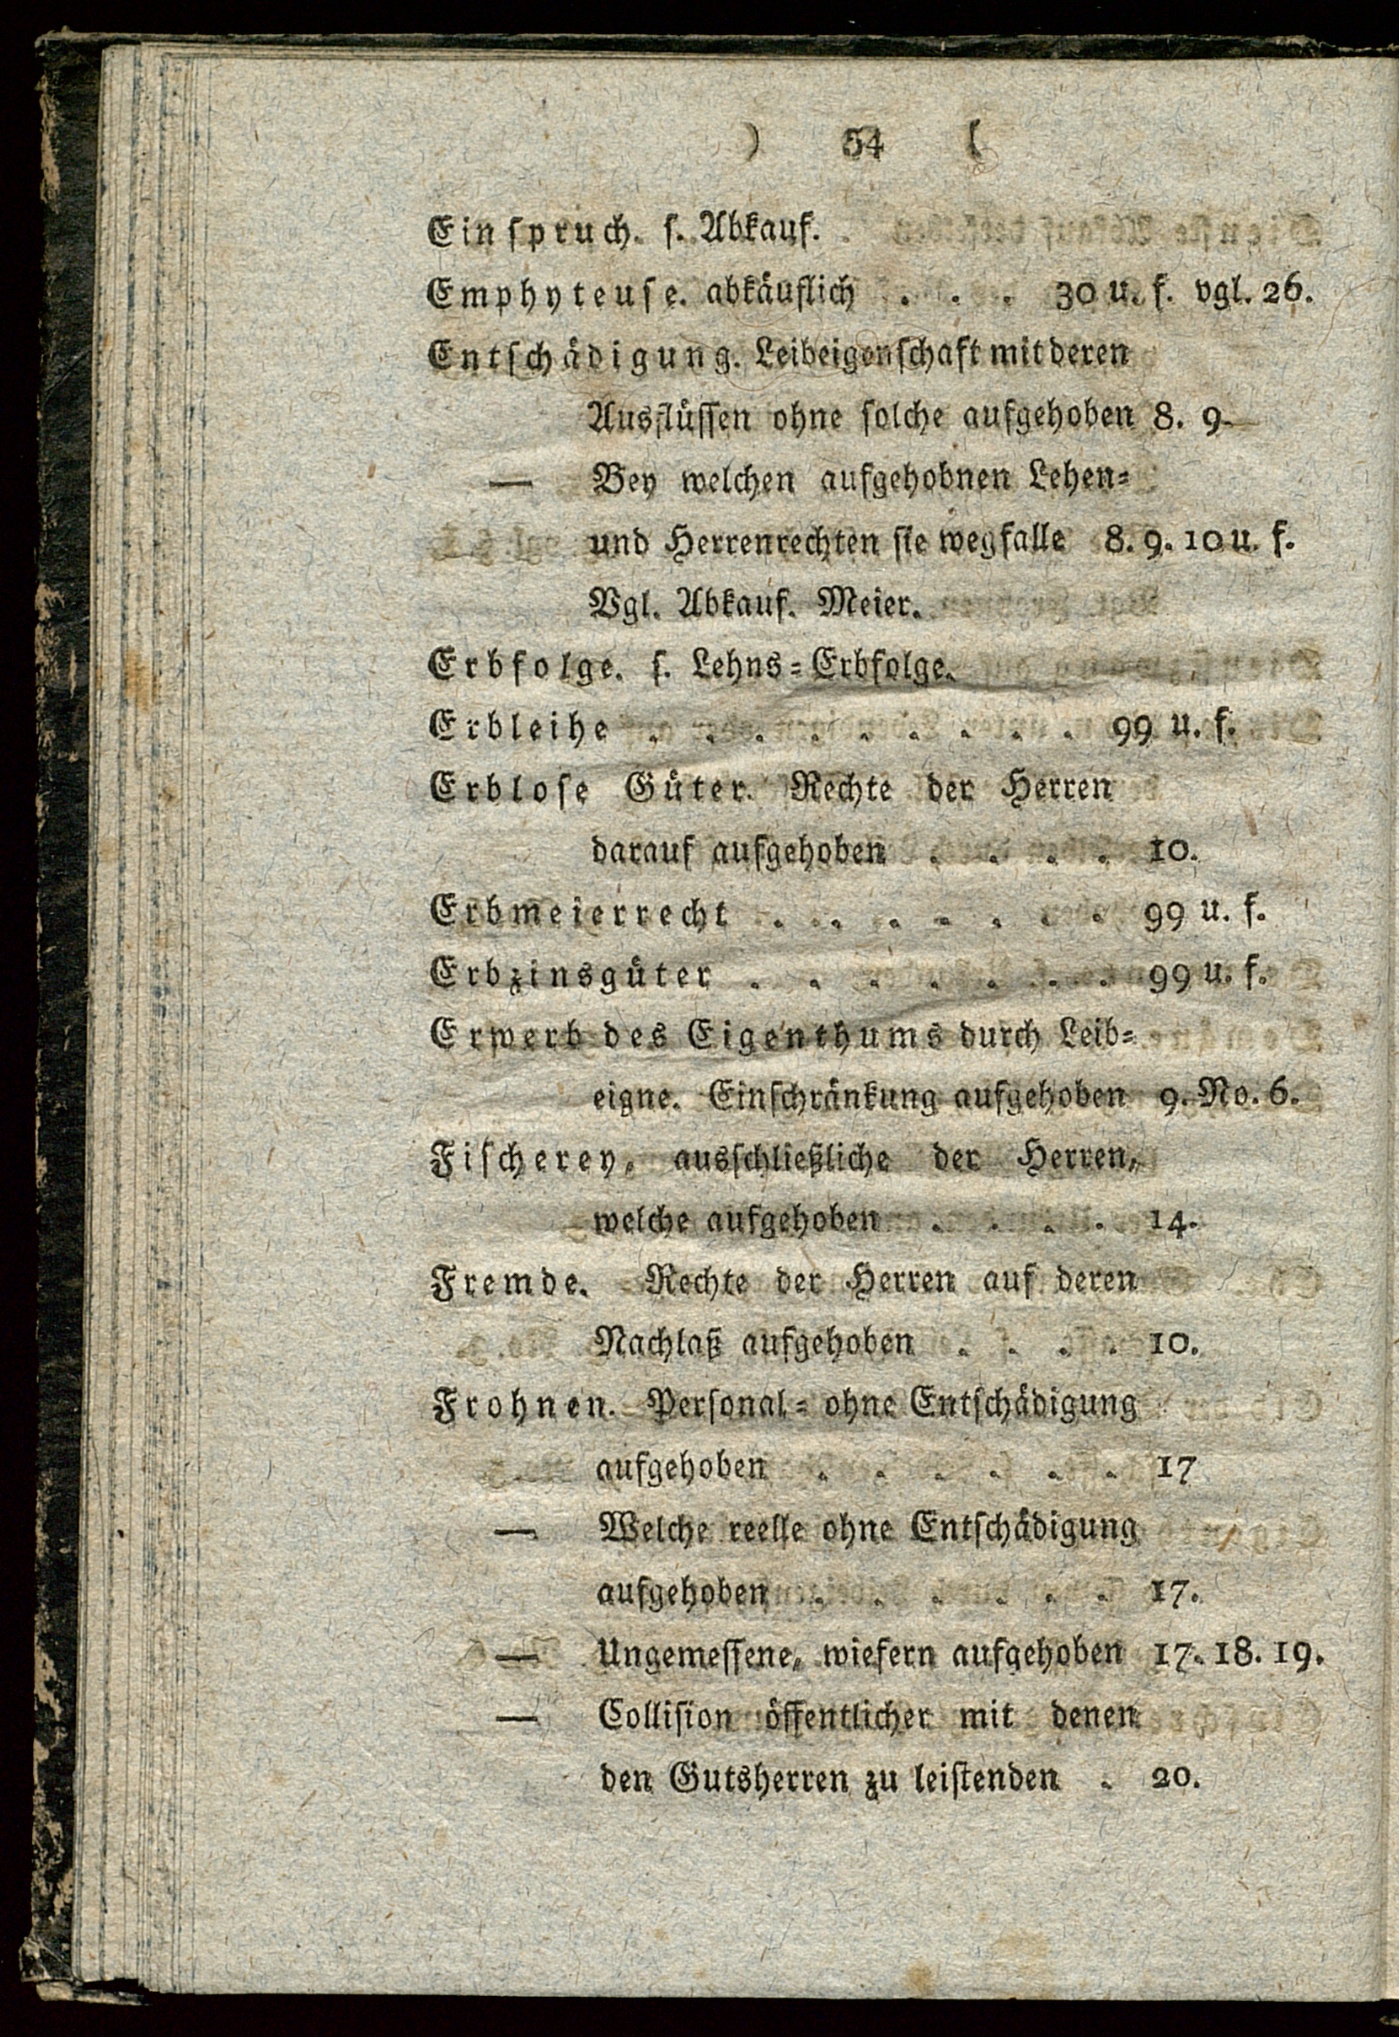 ) 54 (
Einspruch. s. Abkauf.
Emphyteuse. abkäuflich . . . 30 u. f. vgl. 26.
Entschädigung. Leibeigenschaft mit deren
Ausflüssen ohne solche aufgehoben 8. 9.
— Bey welchen aufgehobnen Lehen-
und Herrenrechten sie wegfalle 8. 9. 10 u. f.
Vgl. Abkauf. Meier.
Erbfolge. s. Lehns-Erbfolge.
Erbleihe . . . . . . . . . 99 u. f.
Erblose Güter. Rechte der Herren
darauf aufgehoben . . . . 10.
Erbmeierrecht . . . . . . . 99 u. f.
Erbzinsgüter . . . . . . . 99 u. f.
Erwerb des Eigenthums durch Leib-
eigne. Einschränkung aufgehoben 9. No. 6.
Fischerey, ausschließliche der Herren,
welche aufgehoben . . . . 14.
Fremde. Rechte der Herren auf deren
Nachlaß aufgehoben . . . . 10.
Frohnen. Personal- ohne Entschädigung
aufgehoben . . . . . . 17
— Welche reelle ohne Entschädigung
aufgehoben . . . . . . 17.
— Ungemessene, wiefern aufgehoben 17. 18. 19.
— Collision öffentlicher mit denen
den Gutsherren zu leistenden . 20.